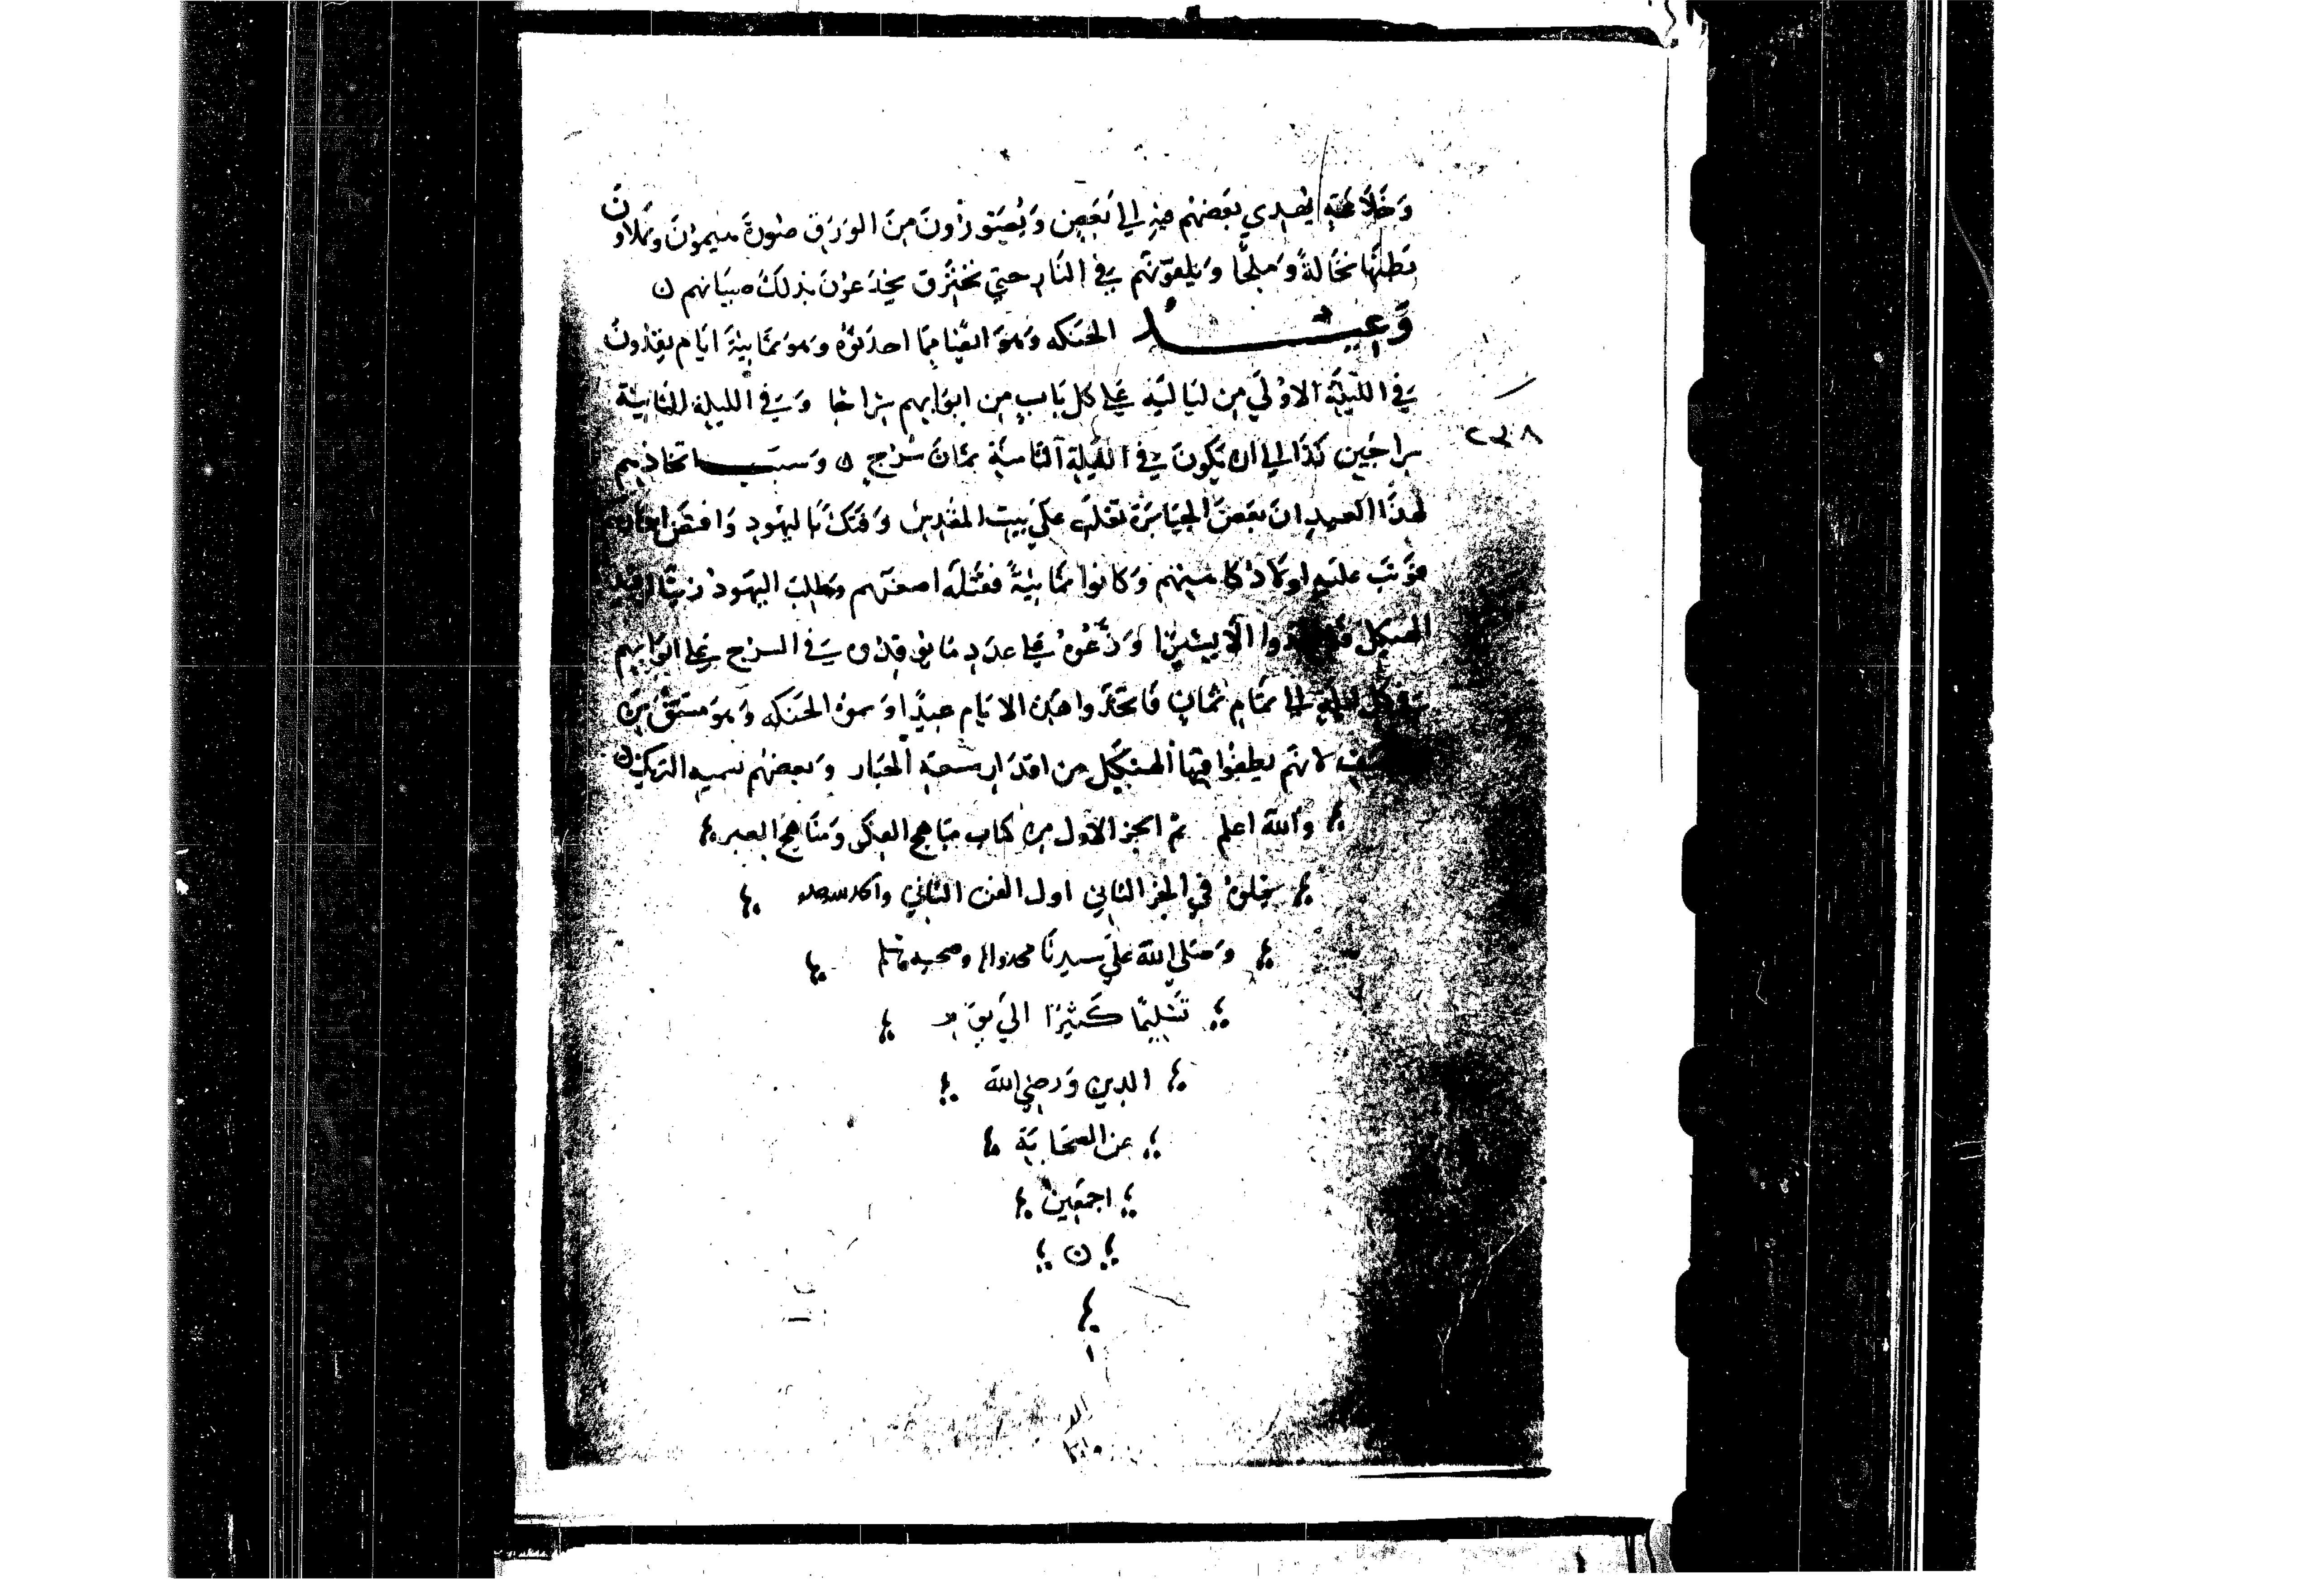 وَخَلَاعَةٍ يُهدي بعَضهُم فيهِ الي بَعَضٍ وَيُصَوّرُونَ مِنَ الوَرَقِ صُورَةَ هيمون وَيملاون
بَطنَهَا نخَالةً وَملحًا وَيلقونَهم في النَّار حتي تحْترق يخدَعوُنَ بذلكَ صبيَانهم ن
وَعيــــد الحنكه وَهوَ ايضًا مِمَّا احدَثوُهُ وَهوَ ثمَانِيَة ايَام يقِدُونَ
في الليلَةِ الاوُلَي مِن ليَاليَهِ عَلي كل بَابٍ مِن ابوَابهم سِرَاجًا وَفي الليلة الثانيَة
سراجَين كذَا الي ان يَكونَ في الليلة الثامِنَة ثمَانَ سُرُج ن وَسبَبــــ اتخاذهم
لهذَا العيد انَ بعَضَ الجبَابرَة تغلبَ عَلي بيت المقدِس وَفتكَ باليهُودِ وَافتضَ
فوَثبَ عليهِ اولادُ كاهنهم وَكانوا ثمَانِيَةً فقتله اصغرهم وَطلبَ اليهَودُ زيتًا
الهيكل الا يسيرًا وَزعُوهُ عَلي عدَدِ مَا يوقدون في السرج عَلي ابوَابهم
كل ليلةٍ الي تمَام ثمانٍ فاتخذوا هَذِهِ الايَام عيدًا وَسموهُ الحنكه وَهوَ مشتق مِن
لانهم نظفوُا فيهَا الهيكل من اقذَار شيعَةِ الجبار وَبعضهُم يسميه التبريك ن
والله اعلم تم الجز الاول من كتاب مبَاهج الفكر وَمنَاهج العبر
يتلوه في الجز الثاني اول الفن الثاني والحمد لله وحده
وَصَلي الله علي سيدنَا محمد واله وصحبه وسلم
تَسْليمًا كَثيرًا الي يوم
الدين وَرضي الله
عن الصحَابَة
اجمعَين
ن
٢٣٨